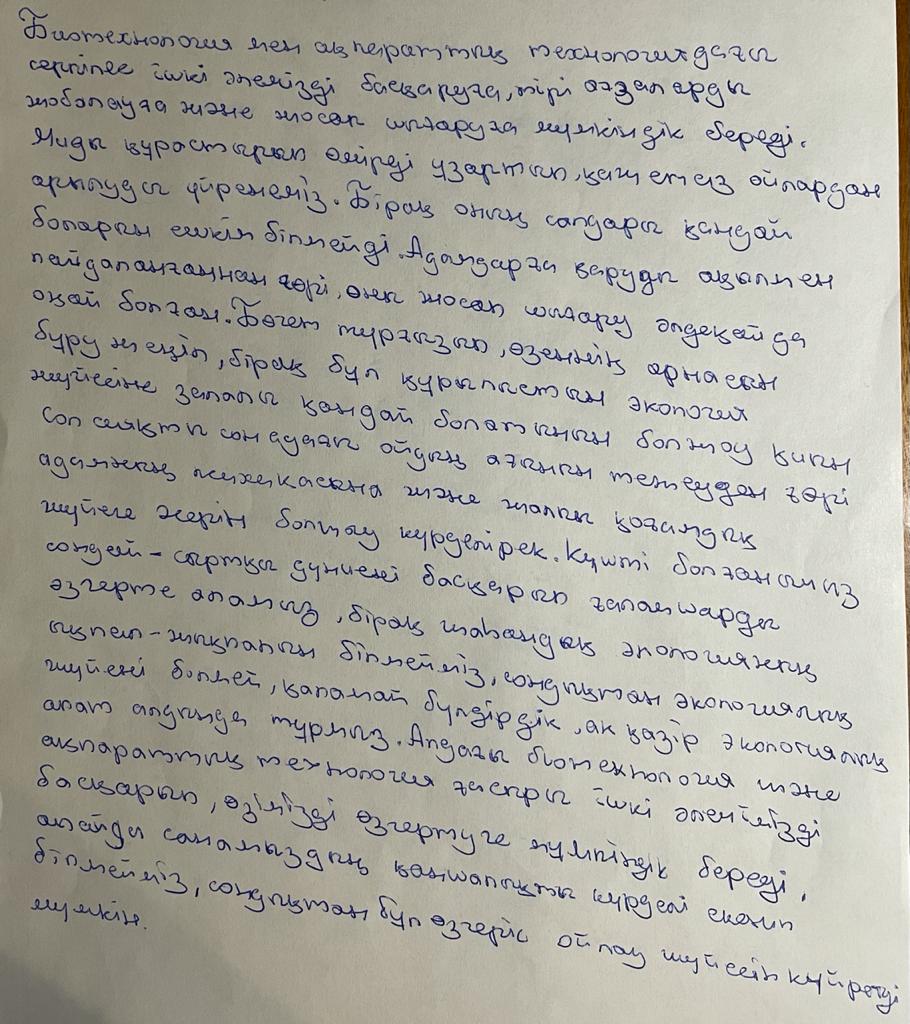 Биотехнология мен ақпараттық технологиядағы
серпілес ішкі әлемізді басқаруға, тірі ағзаларды
жоболауға және жосап шығаруға мүмкіндік береді.
Миды құрастырып өмірді ұзартып, қажетсіз ойлардан
арылуды үйренеміз. Бірақ оның салдары қандай
боларын ешкім білмейді. Адамдарға қаруды ақылмен
пайдаланғаннан гөрі, оны жосап шығару әлдеқайда
оңай болған. Бөгет тұрғызып, өзеннің арнасын
бұру жеңіл, бірақ бұл құрылыстың экология
жүйесіне залалы қандай болатынын болжау қиын
Сол сияқты сонадағы ойдың ағынын тежеуден гөрі
адамның психикасына және жалпы қоғамдық
жүйеге жерін болжау күрделірек. Күшті болғанымыз
сондай - сыртқы дүниені басқарып ғаламшарды
өзгерте аламыз, бірақ жаһандық экологияның
ықпал-жықпалын білмейміз, сондықтан экологиялық
жүйені білмей, қаламай бүлдірдік, ак қазір экологиялық
апат алдында тұрмыз. Алдағы биотехнология және
ақпараттық технология ғасыры ішкі әлемімізді
басқарып, өзімізді өзгертуге мүмкіндік береді,
алайда санамыздың қаншалықты күрделі екенін
білмейміз, сондықтан бұл өзгеріс ойлау жүйесін күйретуі
мүмкін.